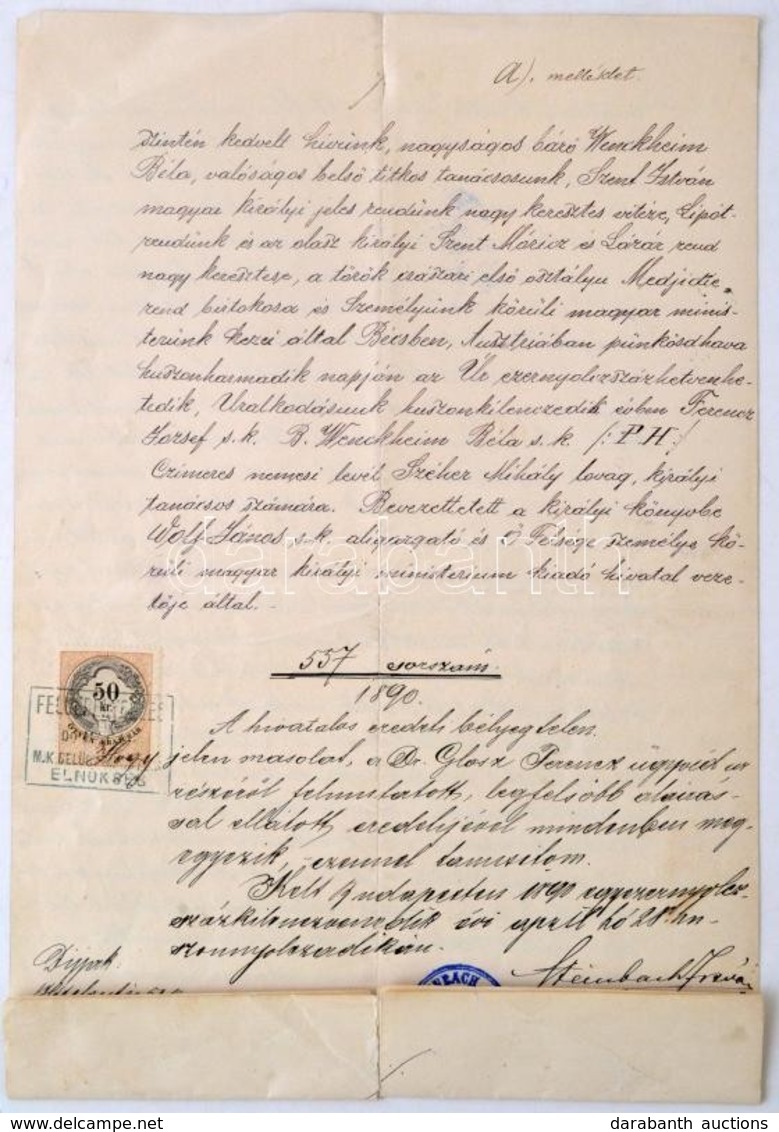 A). melléklet.
szintén kedvelt hívünk, nagyságos báró Wenckheim
Béla, valóságos belső titkos tanácsosunk, Szent István
magyar királyi jeles rendünk nagy keresztes vitéze, Lipót-
rendünk és az olasz királyi Szent Móricz és Lázár rend
nagy keresztese, a török császári első osztályu Medjidie
rend birtokosa és Személyünk körüli magyar minis-
terünk kezei által Bécsben, Ausztriában pünkösdhava
huszonharmadik napján az Úr ezernyolczszázhetvenhe-
tedik, Uralkodásunk huszonkilenczedik évben Ferencz
József s.k. B. Wenckheim Béla s.k. /: P H :/
Czimeres nemesi levél Széher Mihály lovag, királyi
tanácsos számára. Bevezettetett a királyi könyvbe
Wolf János s.k. aligazgató és Ő Felsége személye kö-
rüli magyar királyi ministerium kiadó hivatal veze-
tője által.
557 sorszám.
1890.
A hivatalos eredeti bélyegtelen.
Hogy jelen masolat, a Dr. Glosz Ferencz ügyvéd ur
részéről felmutatott, legfelsőbb aláirás-
sal ellátott eredetijével mindenben meg-
egyezik, ezennel tanusitom.
Kelt Budapesten 1890 egyezernyolcz-
százkilenczvenedik évi april hó 28 hu-
szonnyolczadikán.
50
kr.
M.K. BELÜ
ELNÖKSÉG
Dijjak
Steinbach István
darabanth
darabanth auctions